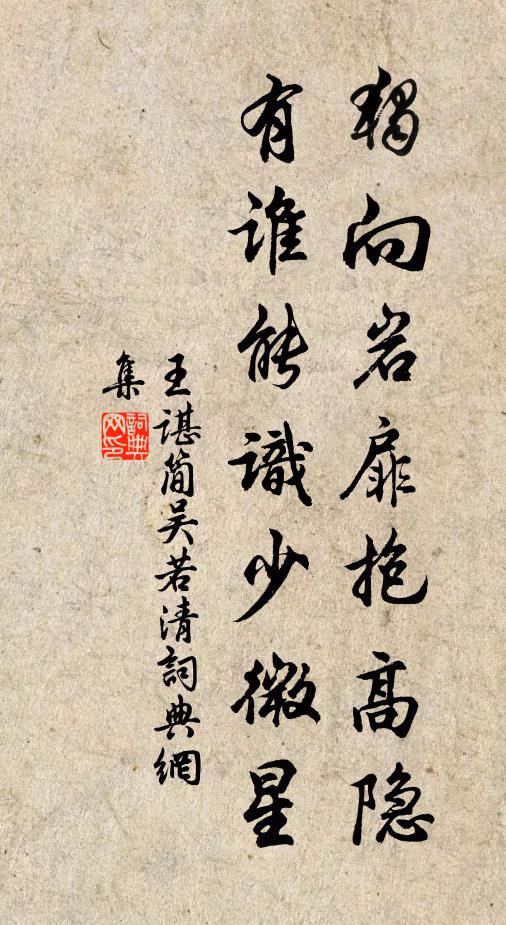 独向岩扉抱高隐
有谁能識少微星
王谌简吴若清詞典網
集
詞典
网印